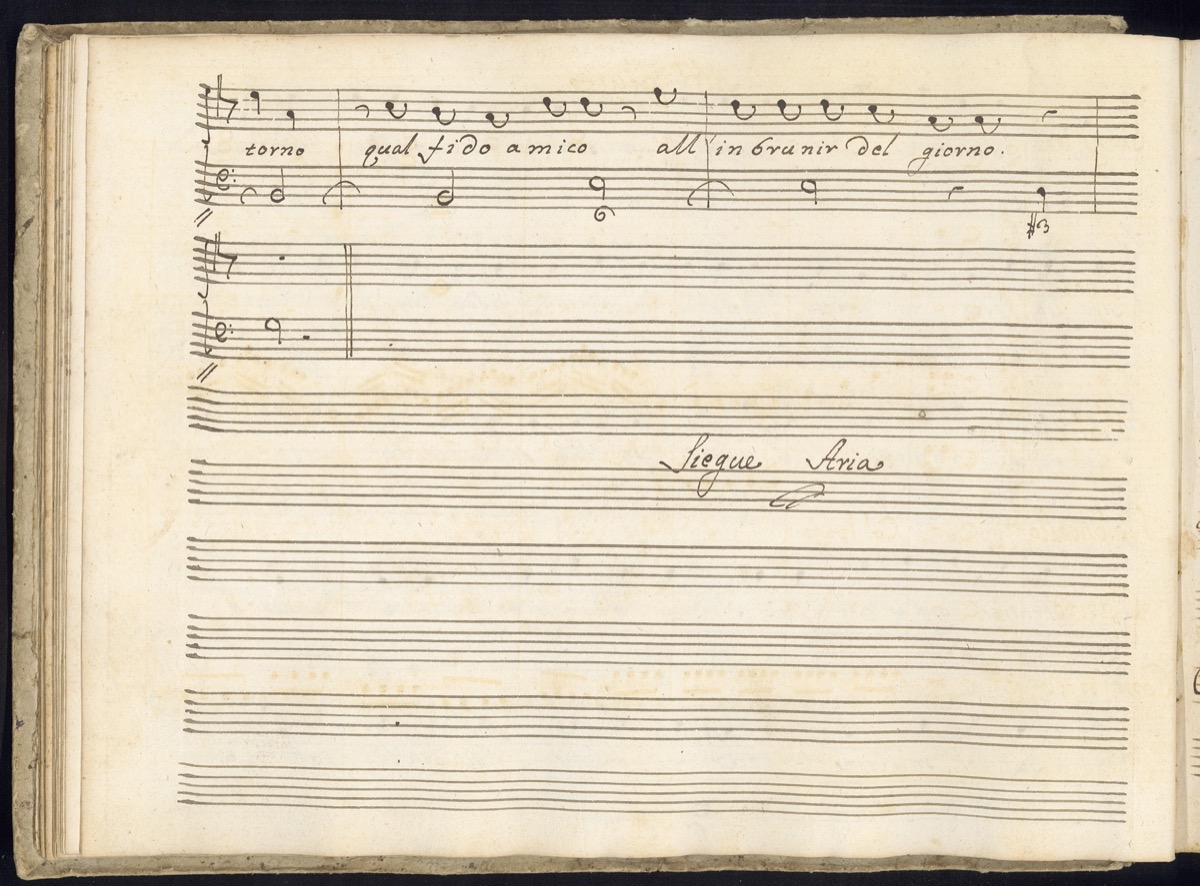 torno qual fido amico all'inbrunir del giorno.
6
#3
Siegue Aria